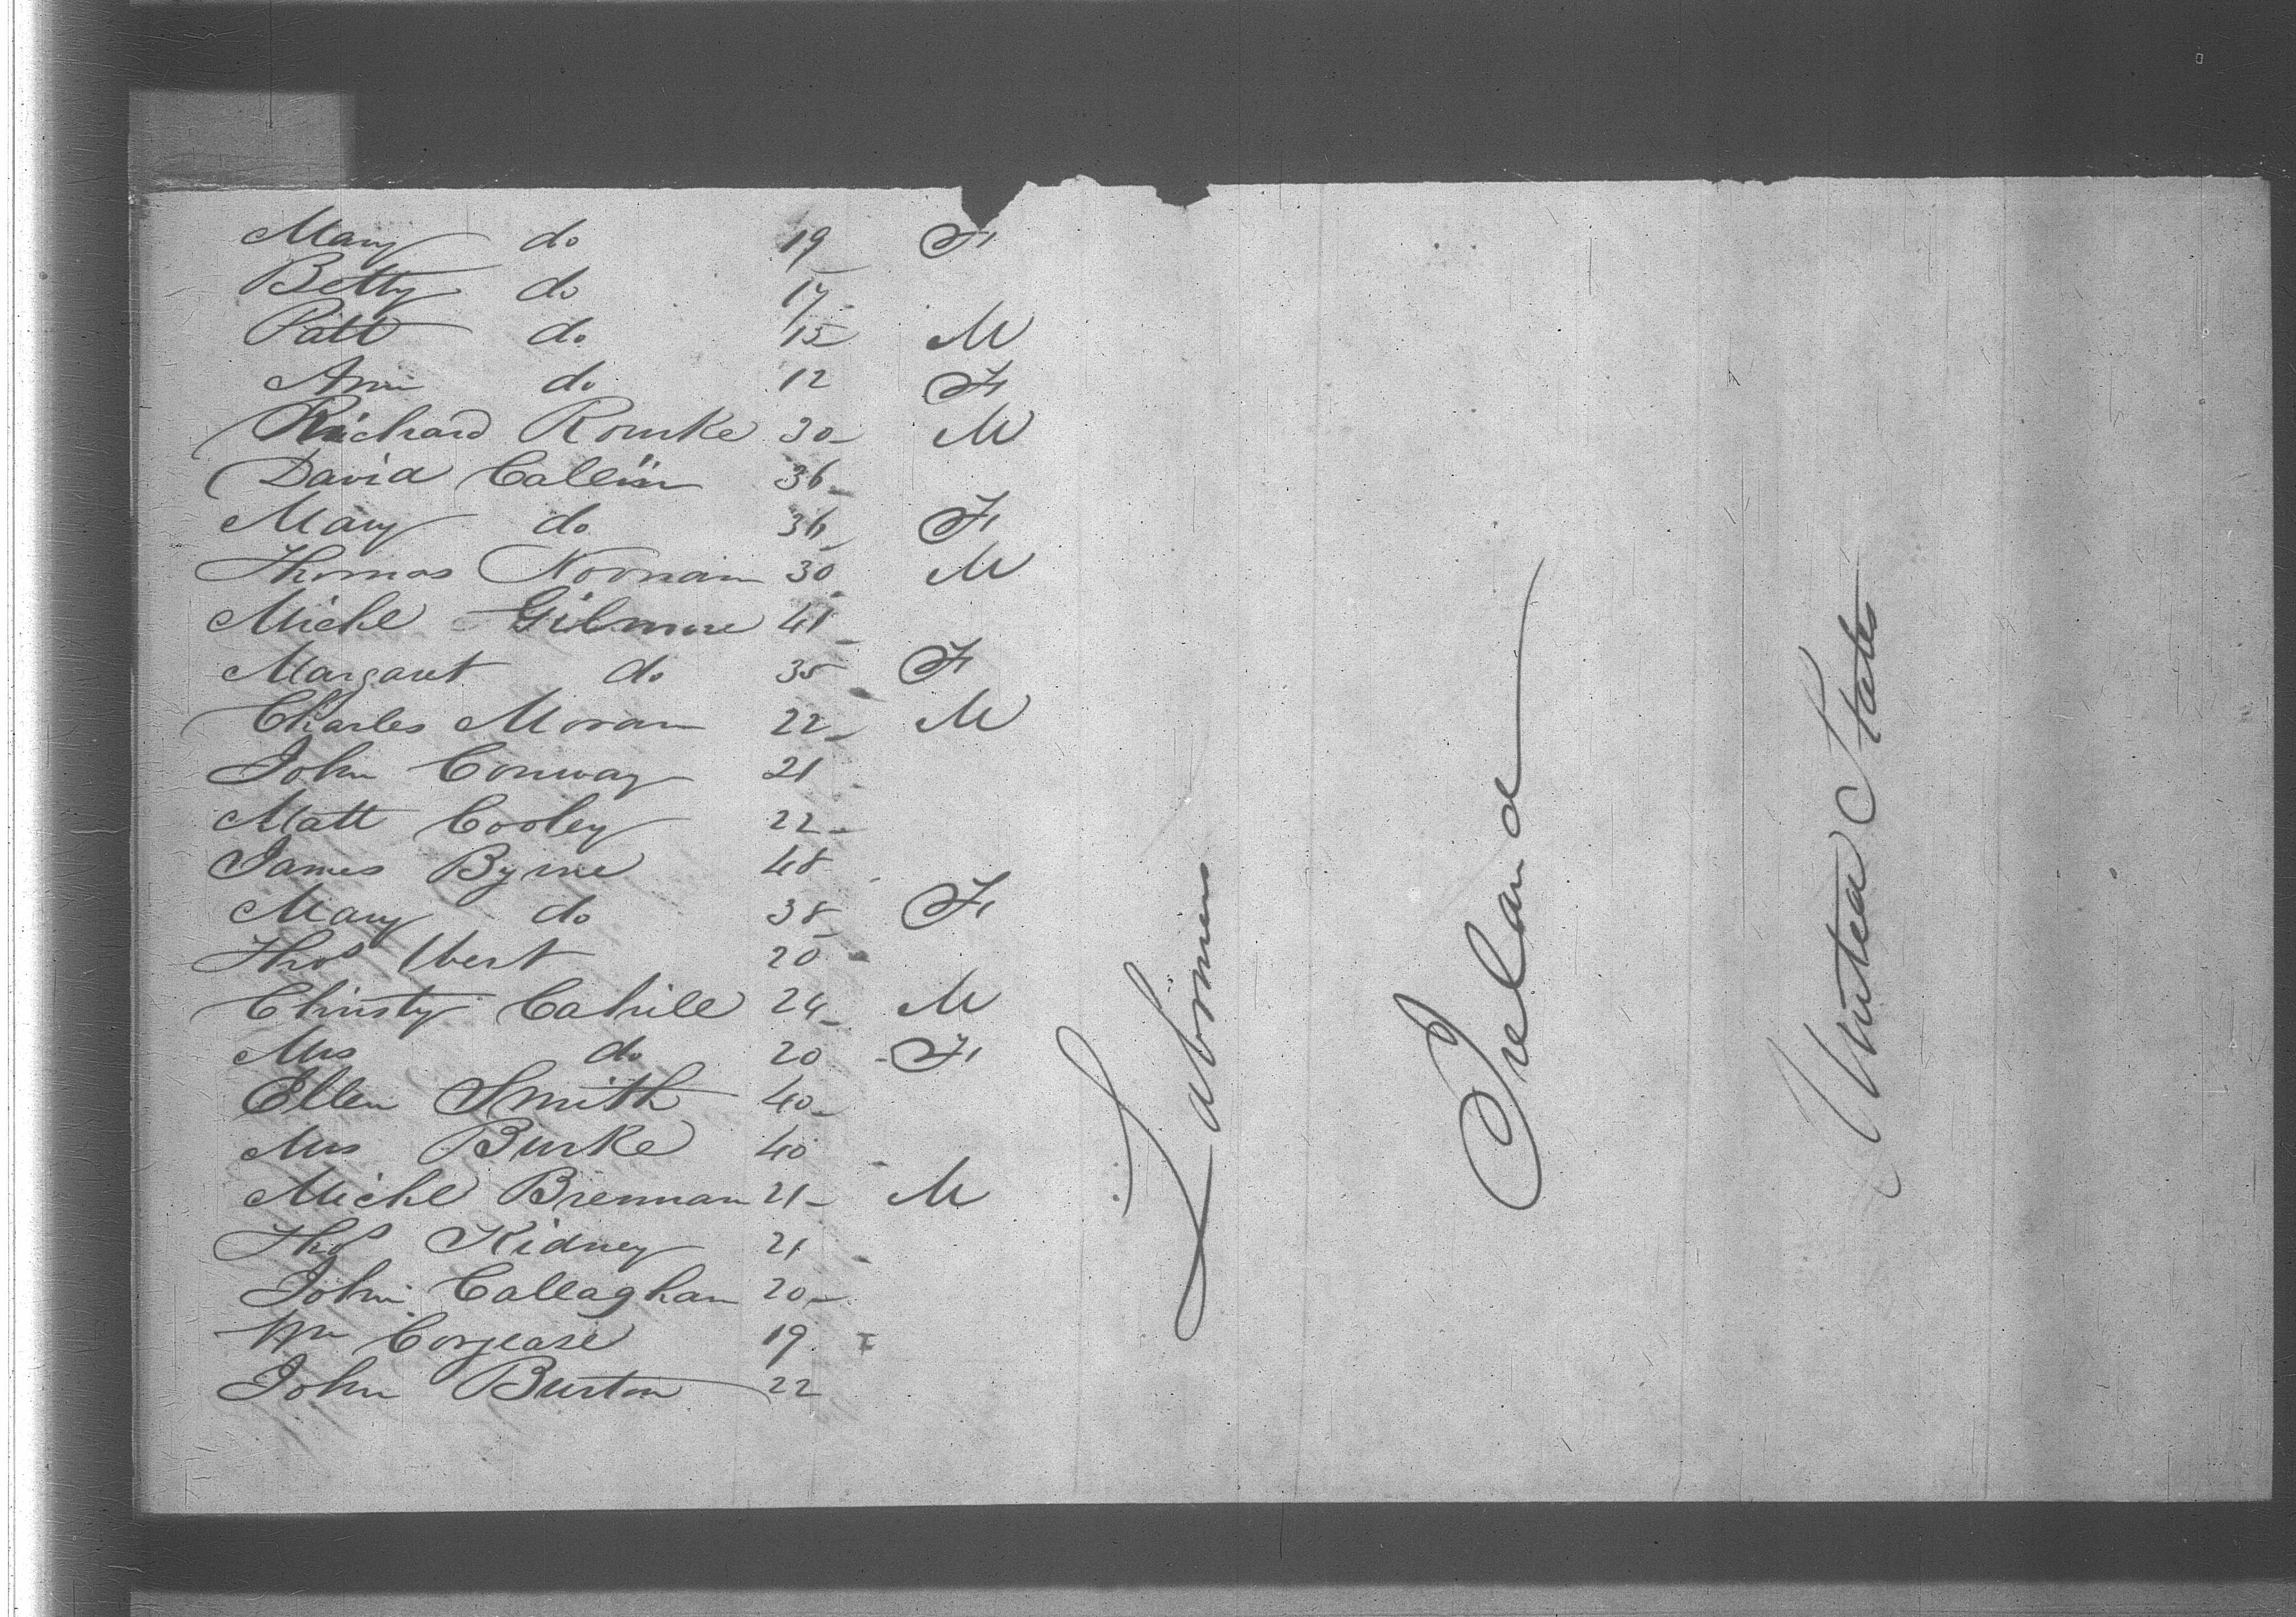 Mary do 19 F
Betty do 17
Patt do 15 M
Ann do 12 F
Richard Rourke 30 M
David Callin 36
Mary do 36 F
Thomas Noonan 30 M
Michl Gilmore 41
Margaret do 35 F
Charles Moran 22 M
John Conway 21
Matt Cooley 22
James Byrne 48
Mary do 38 F
Thos 20
Christy Cahill 24 M
Mrs do 20 F
Ellen Smith 40
Mrs Burke 40
Michl Brennan 21 M
Thos Kidney 21
John Callaghan 20
Wm 19
John Burton 22
Labourers
Ireland
United States